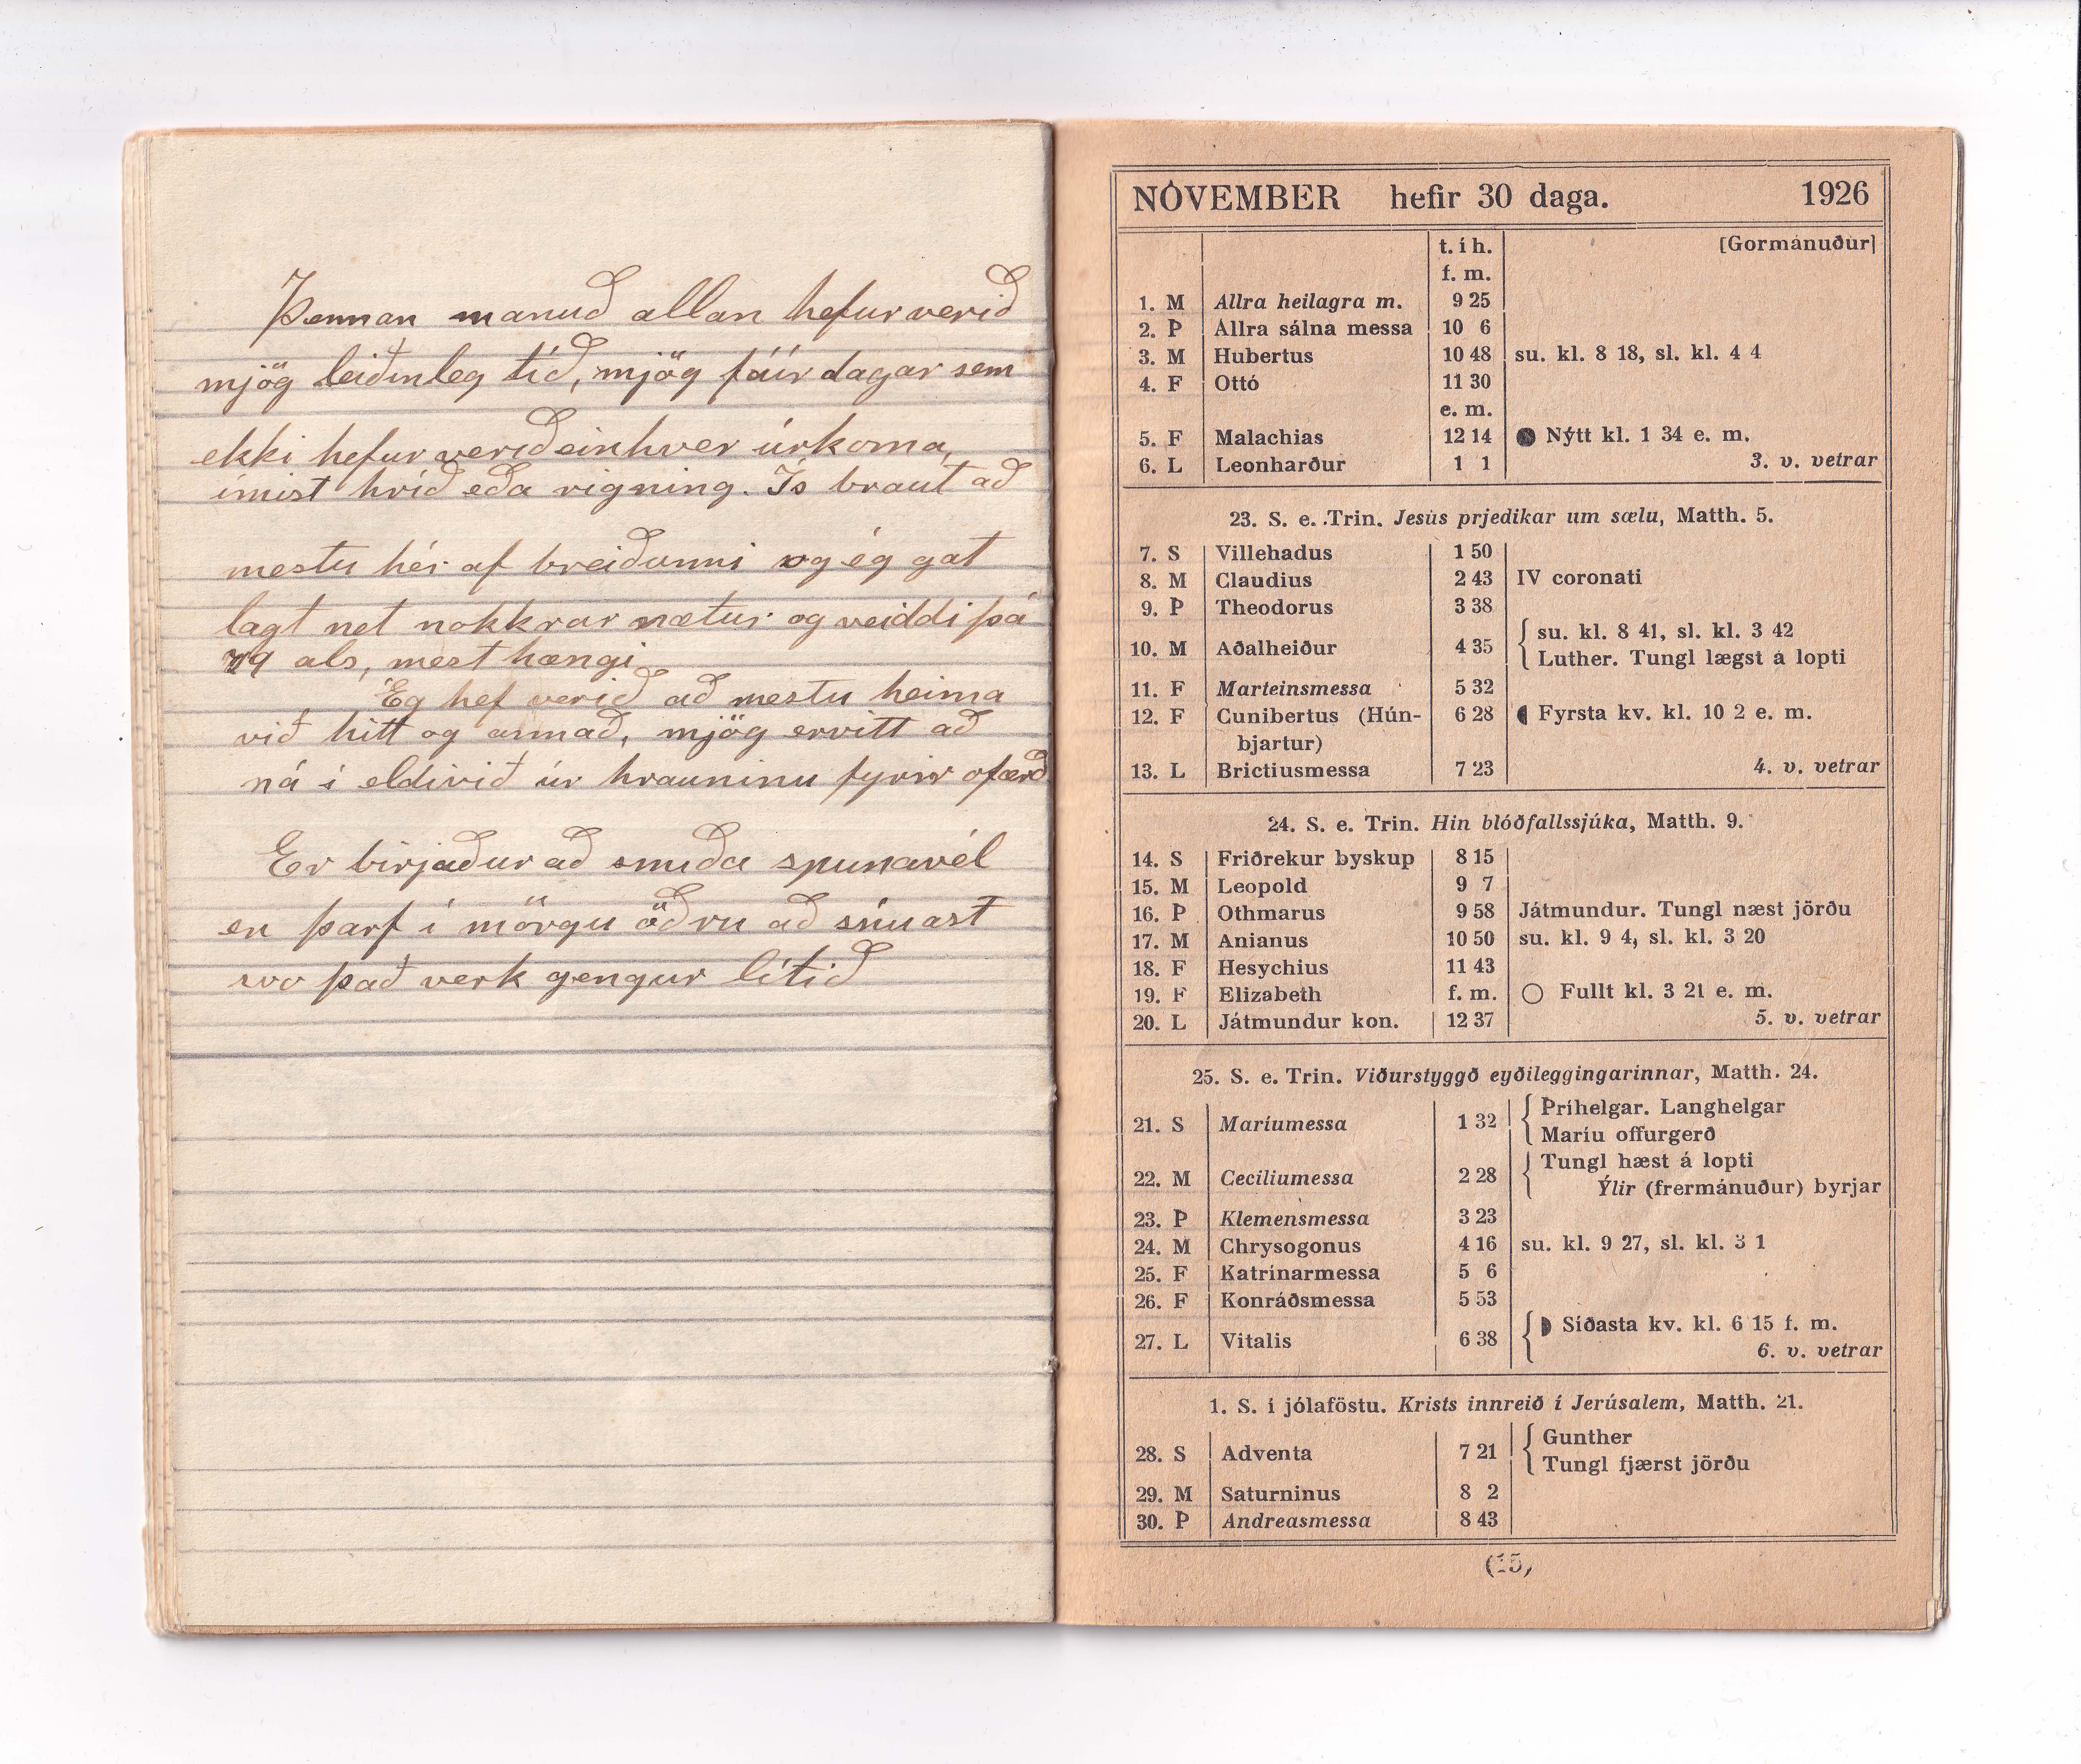 Þennan manuð allan hefur verið
mjög leiðinleg tíð, mjög fáir dagar sem
ekki hefur verið einhver úrkoma,
ímist hríð eða rigning. Ís braut að
mestu hér af breiðunni og ég gat
lagt net nokkrar nætur og veiddi þá
als, mest hængi
Eg hef verið að mestu heima
við hitt og annað, mjög ervitt að
ná í eldivið úr hrauninu fyrir ofærð
Er birjaður að smiða spunavél
en þarf í mörgu öðru að snúast
svo það verk gengur lítið
NÓVEMBER hefir 30 daga. 1926
t. í h. [Gormánuður]
f. m.
1. M Allra heilagra m. 9 25
2. Þ Allra sálna messa 10 6
3. M Hubertus 10 48 su. kl. 8 18, sl. kl. 4 4
4. F Ottó 11 30
e. m.
5. F Malachias 12 14 ● Nýtt kl. 1 34 e. m.
6. L Leonharður 1 1 3. v. vetrar
23. S. e. Trin. Jesús prjedikar um sælu, Matth. 5.
7. S Villehadus 1 50
8. M Claudius 2 43 IV coronati
9. Þ Theodorus 3 38
10. M Aðalheiður 4 35 su. kl. 8 41, sl. kl. 3 42
Luther. Tungl lægst á lopti
11. F Marteinsmessa 5 32
12. F Cunibertus (Hún- 6 28 Fyrsta kv. kl. 10 2 e. m.
bjartur)
13. L Brictiusmessa 7 23 4. v. vetrar
24. S. e. Trin. Hin blóðfallssjúka, Matth. 9.
14. S Friðrekur byskup 8 15
15. M Leopold 9 7
16. Þ Othmarus 9 58 Játmundur. Tungl næst jörðu
17. M Anianus 10 50 su. kl. 9 4, sl. kl. 3 20
18. F Hesychius 11 43
19. F Elizabeth f. m. ○ Fullt kl. 3 21 e. m.
20. L Játmundur kon. 12 37 5. v. vetrar
25. S. e. Trin. Viðurstyggð eyðileggingarinnar, Matth. 24.
21. S Maríumessa 1 32 Þríhelgar. Langhelgar
Maríu offurgerð
22. M Ceciliumessa 2 28 Tungl hæst á lopti
Ýlir (frermánuður) byrjar
23. Þ Klemensmessa 3 23
24. M Chrysogonus 4 16 su. kl. 9 27, sl. kl. 3 1
25. F Katrínarmessa 5 6
26. F Konráðsmessa 5 53
27. L Vitalis 6 38 Síðasta kv. kl. 6 15 f. m.
6. v. vetrar
1. S. í jólaföstu. Krists innreið í Jerúsalem, Matth. 21.
28. S Adventa 7 21 Gunther
Tungl fjærst jörðu
29. M Saturninus 8 2
30. Þ Andreasmessa 8 43
(15)